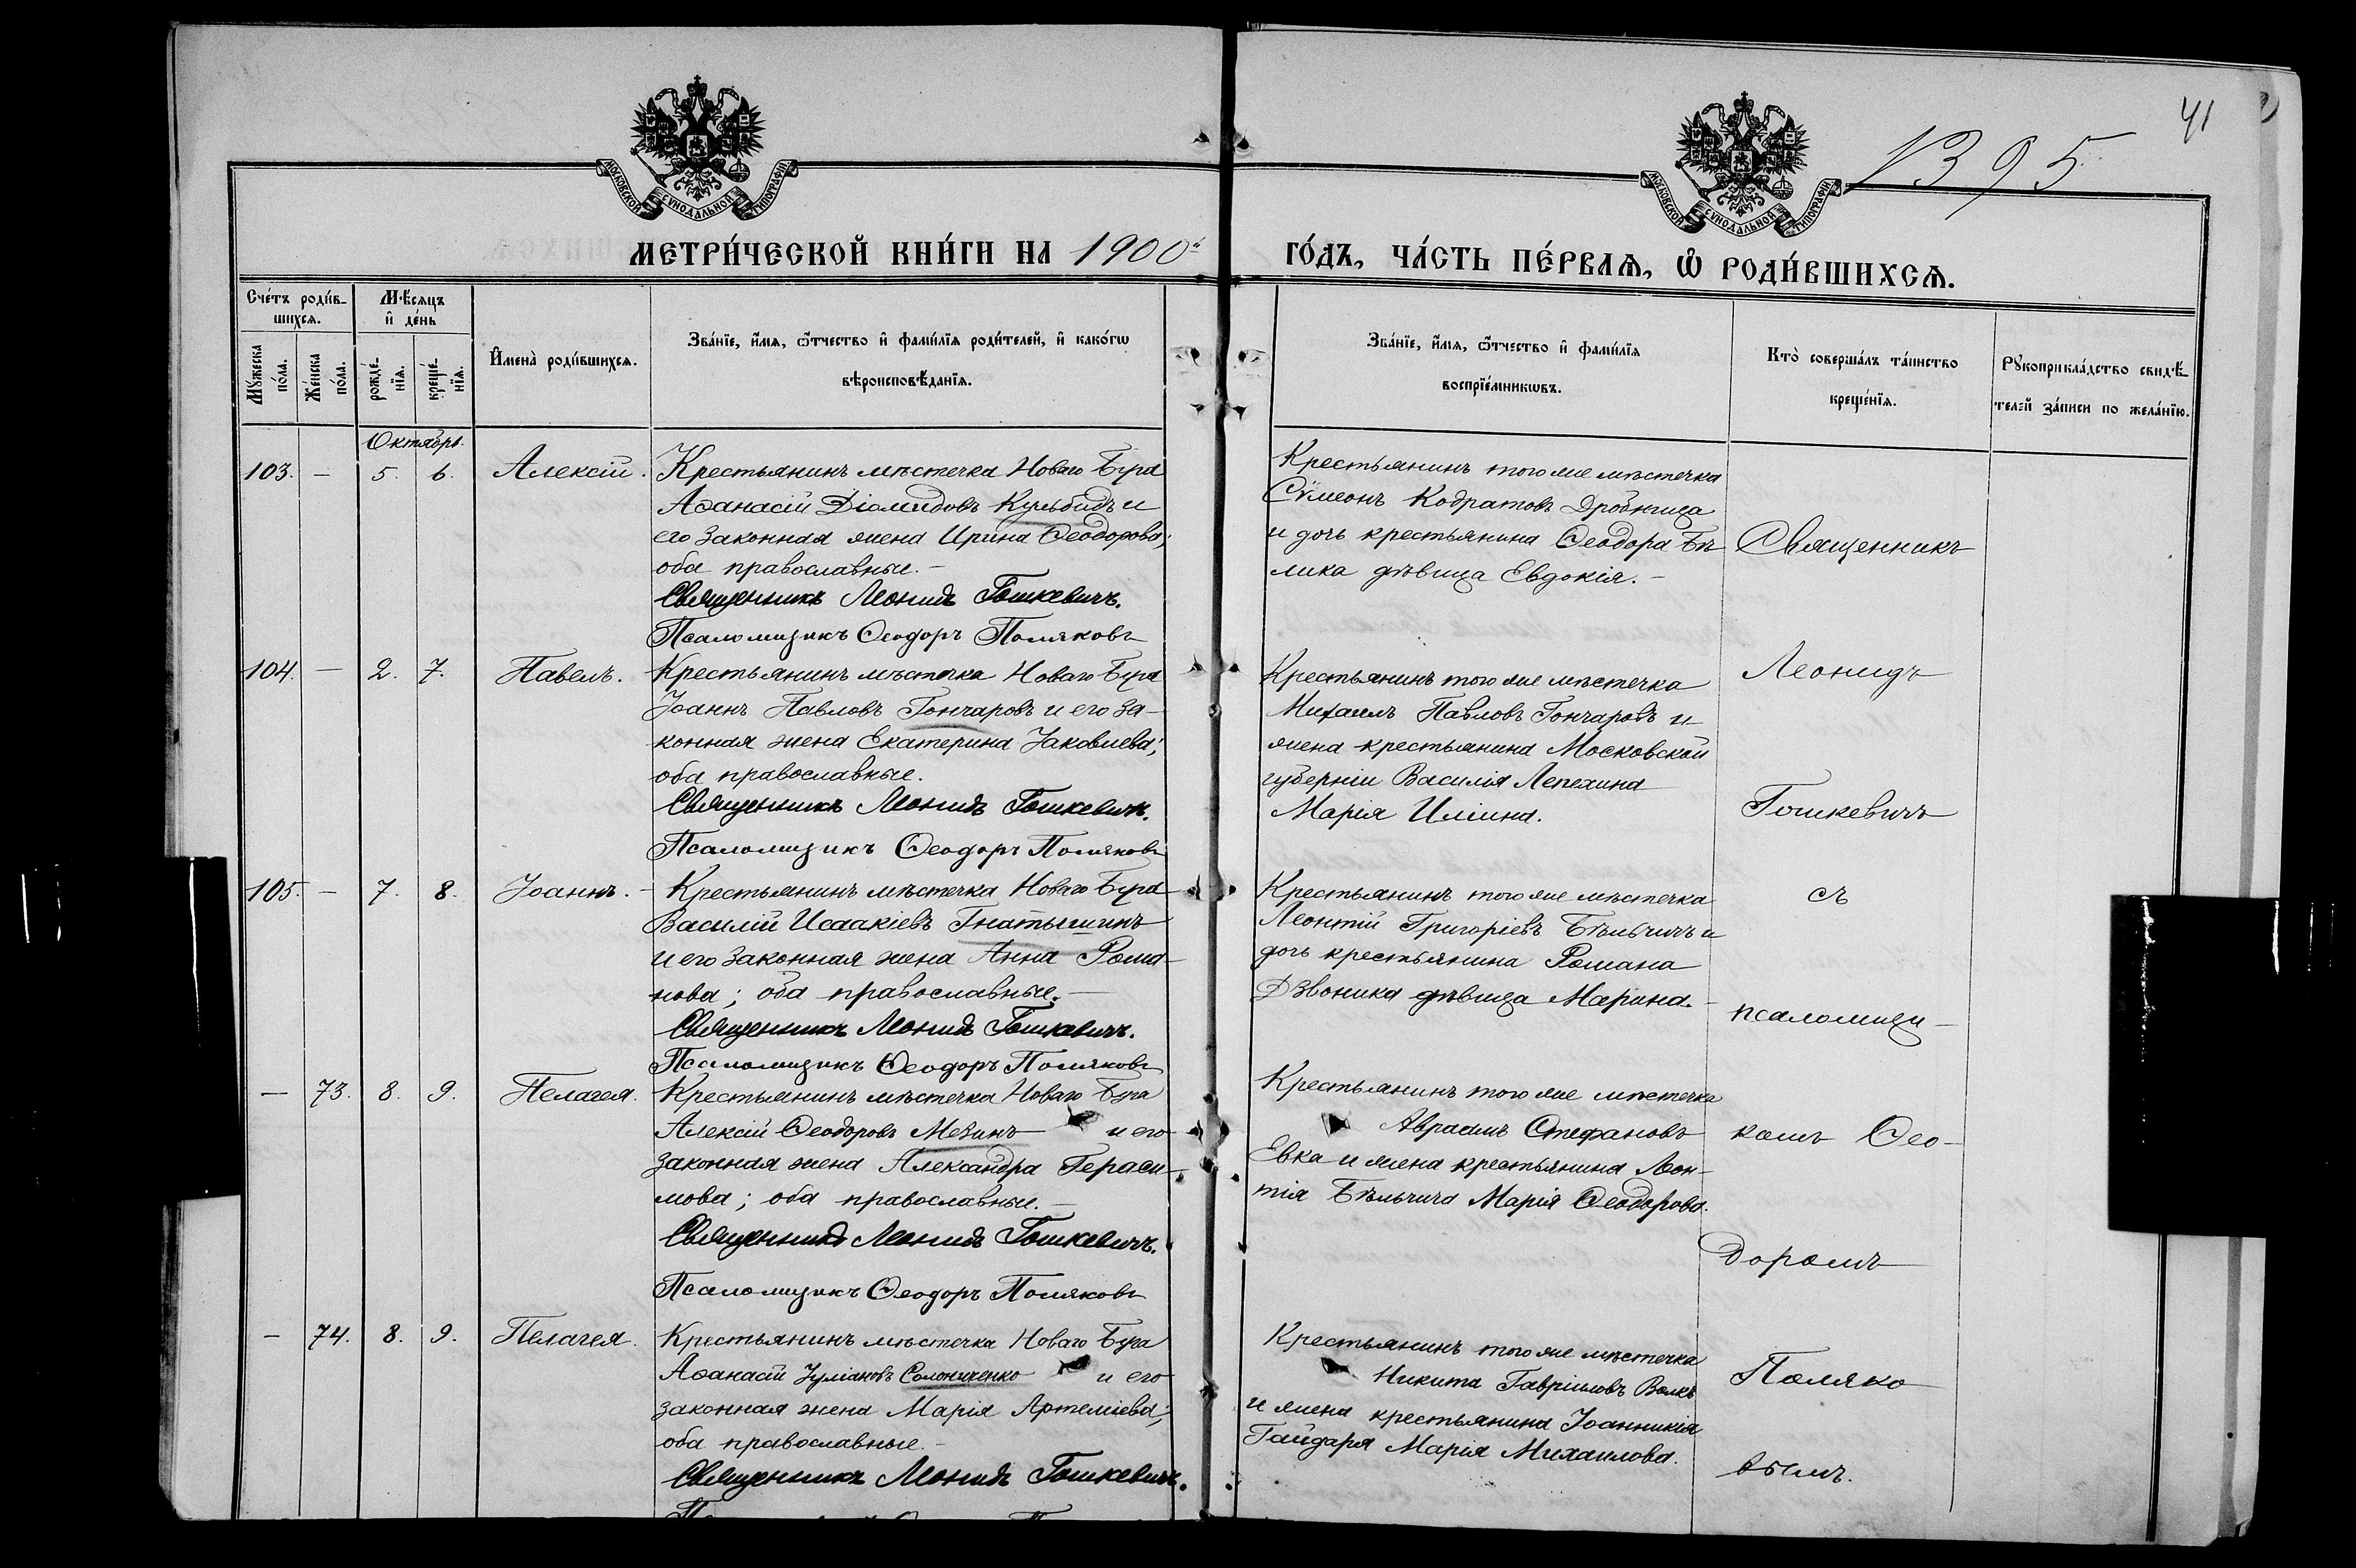 41
1395
МОСКОВСКОЙ СѴНОДАЛЬНОЙ ТИПОГРАФІИ
МОСКОВСКОЙ СѴНОДАЛЬНОЙ ТИПОГРАФІИ
МЕТРИ́ЧЕСКОЙ КНИ́ГИ НА 1900й
ГО́ДЪ, ЧА́СТЬ ПЕ́РВАѦ, Ѡ҆ РОДИ́ВШИХСѦ.
Сче́тъ роди́в-
шихсѧ.
Мꙋ́жеска по́ла.
Же́нска по́ла.
Мѣ́сѧцъ
и҆ де́нь
рожде́-
нїѧ.
креще́-
нїѧ.
И҆мена̀ роди́вшихсѧ.
Зва́нїе, и҆́мѧ, ѻ҆́тчество и҆ фами́лїѧ роди́телей, и҆ како́гѡ
вѣроисповѣ́данїѧ.
Зва́нїе, и҆́мѧ, ѻ҆́тчество и҆ фами́лїѧ
воспрїе́мникѡвъ.
Кто̀ соверша́лъ та́инство
креще́нїѧ.
Рꙋкоприкла́дство свидѣ́-
телей за́писи по жела́нїю.
Октябрь.
103. — 5. 6. Алексій.
Крестьянинъ мѣстечка Новаго Буга
Аѳанасій Діомидовъ Кульбидъ и
его законная жена Ирина Ѳеодорова;
оба православные. —
Священникъ Леонидъ Гошкевичъ.
Псаломщикъ Ѳеодоръ Поляковъ
Крестьянинъ того же мѣстечка
Сѵмеонъ Кодратовъ Дробница
и дочь крестьянина Ѳеодора Бѣ
лика дѣвица Евдокія. —
104. — 2. 7. Павелъ.
Крестьянинъ мѣстечка Новаго Буга
Іоаннъ Павловъ Гончаровъ и его за-
конная жена Екатерина Іаковлева;
оба православные.
Священникъ Леонидъ Гошкевичъ.
Псаломщикъ Ѳеодоръ Поляковъ
Крестьянинъ того же мѣстечка
Михаилъ Павловъ Гончаровъ и
жена крестьянина Московской
губерніи Василія Лепехина
Марія Иліина.
105. — 7. 8. Іоаннъ. —
Крестьянинъ мѣстечка Новаго Буга
Василій Исаакіевъ Гнатышинъ
и его законная жена Анна Рома-
нова; оба православные. —
Священникъ Леонидъ Гошкевичъ.
Псаломщикъ Ѳеодоръ Поляковъ
Крестьянинъ того же мѣстечка
Леонтій Григоріевъ Бѣльчичъ и
дочь крестьянина Романа
Дзвоника дѣвица Марина. —
— 73. 8. 9. Пелагея.
Крестьянинъ мѣстечка Новаго Буга
Алексій Ѳеодоровъ Мезинъ и его
законная жена Александра Гераси-
мова; оба православные. —
Священникъ Леонидъ Гошкевичъ.
Псаломщикъ Ѳеодоръ Поляковъ
Крестьянинъ того же мѣстечка
Авраамъ Стефановъ
Евка и жена крестьянина Леон-
тія Бѣльчича Марія Ѳеодорова.
— 74. 8. 9. Пелагея.
Крестьянинъ мѣстечка Новаго Буга
Аѳанасій Іуліановъ Солониченко и его
законная жена Марія Артеміева;
оба православные. —
Священникъ Леонидъ Гошкевичъ.
Крестьянинъ того же мѣстечка
Никита Гавріиловъ Волкъ
и жена крестьянина Іоанникія
Гайдаря Марія Михаилова.
Священникъ
Леонидъ
Гошкевичъ
съ
псаломщи-
комъ Ѳео-
доромъ
Поляко
вымъ.